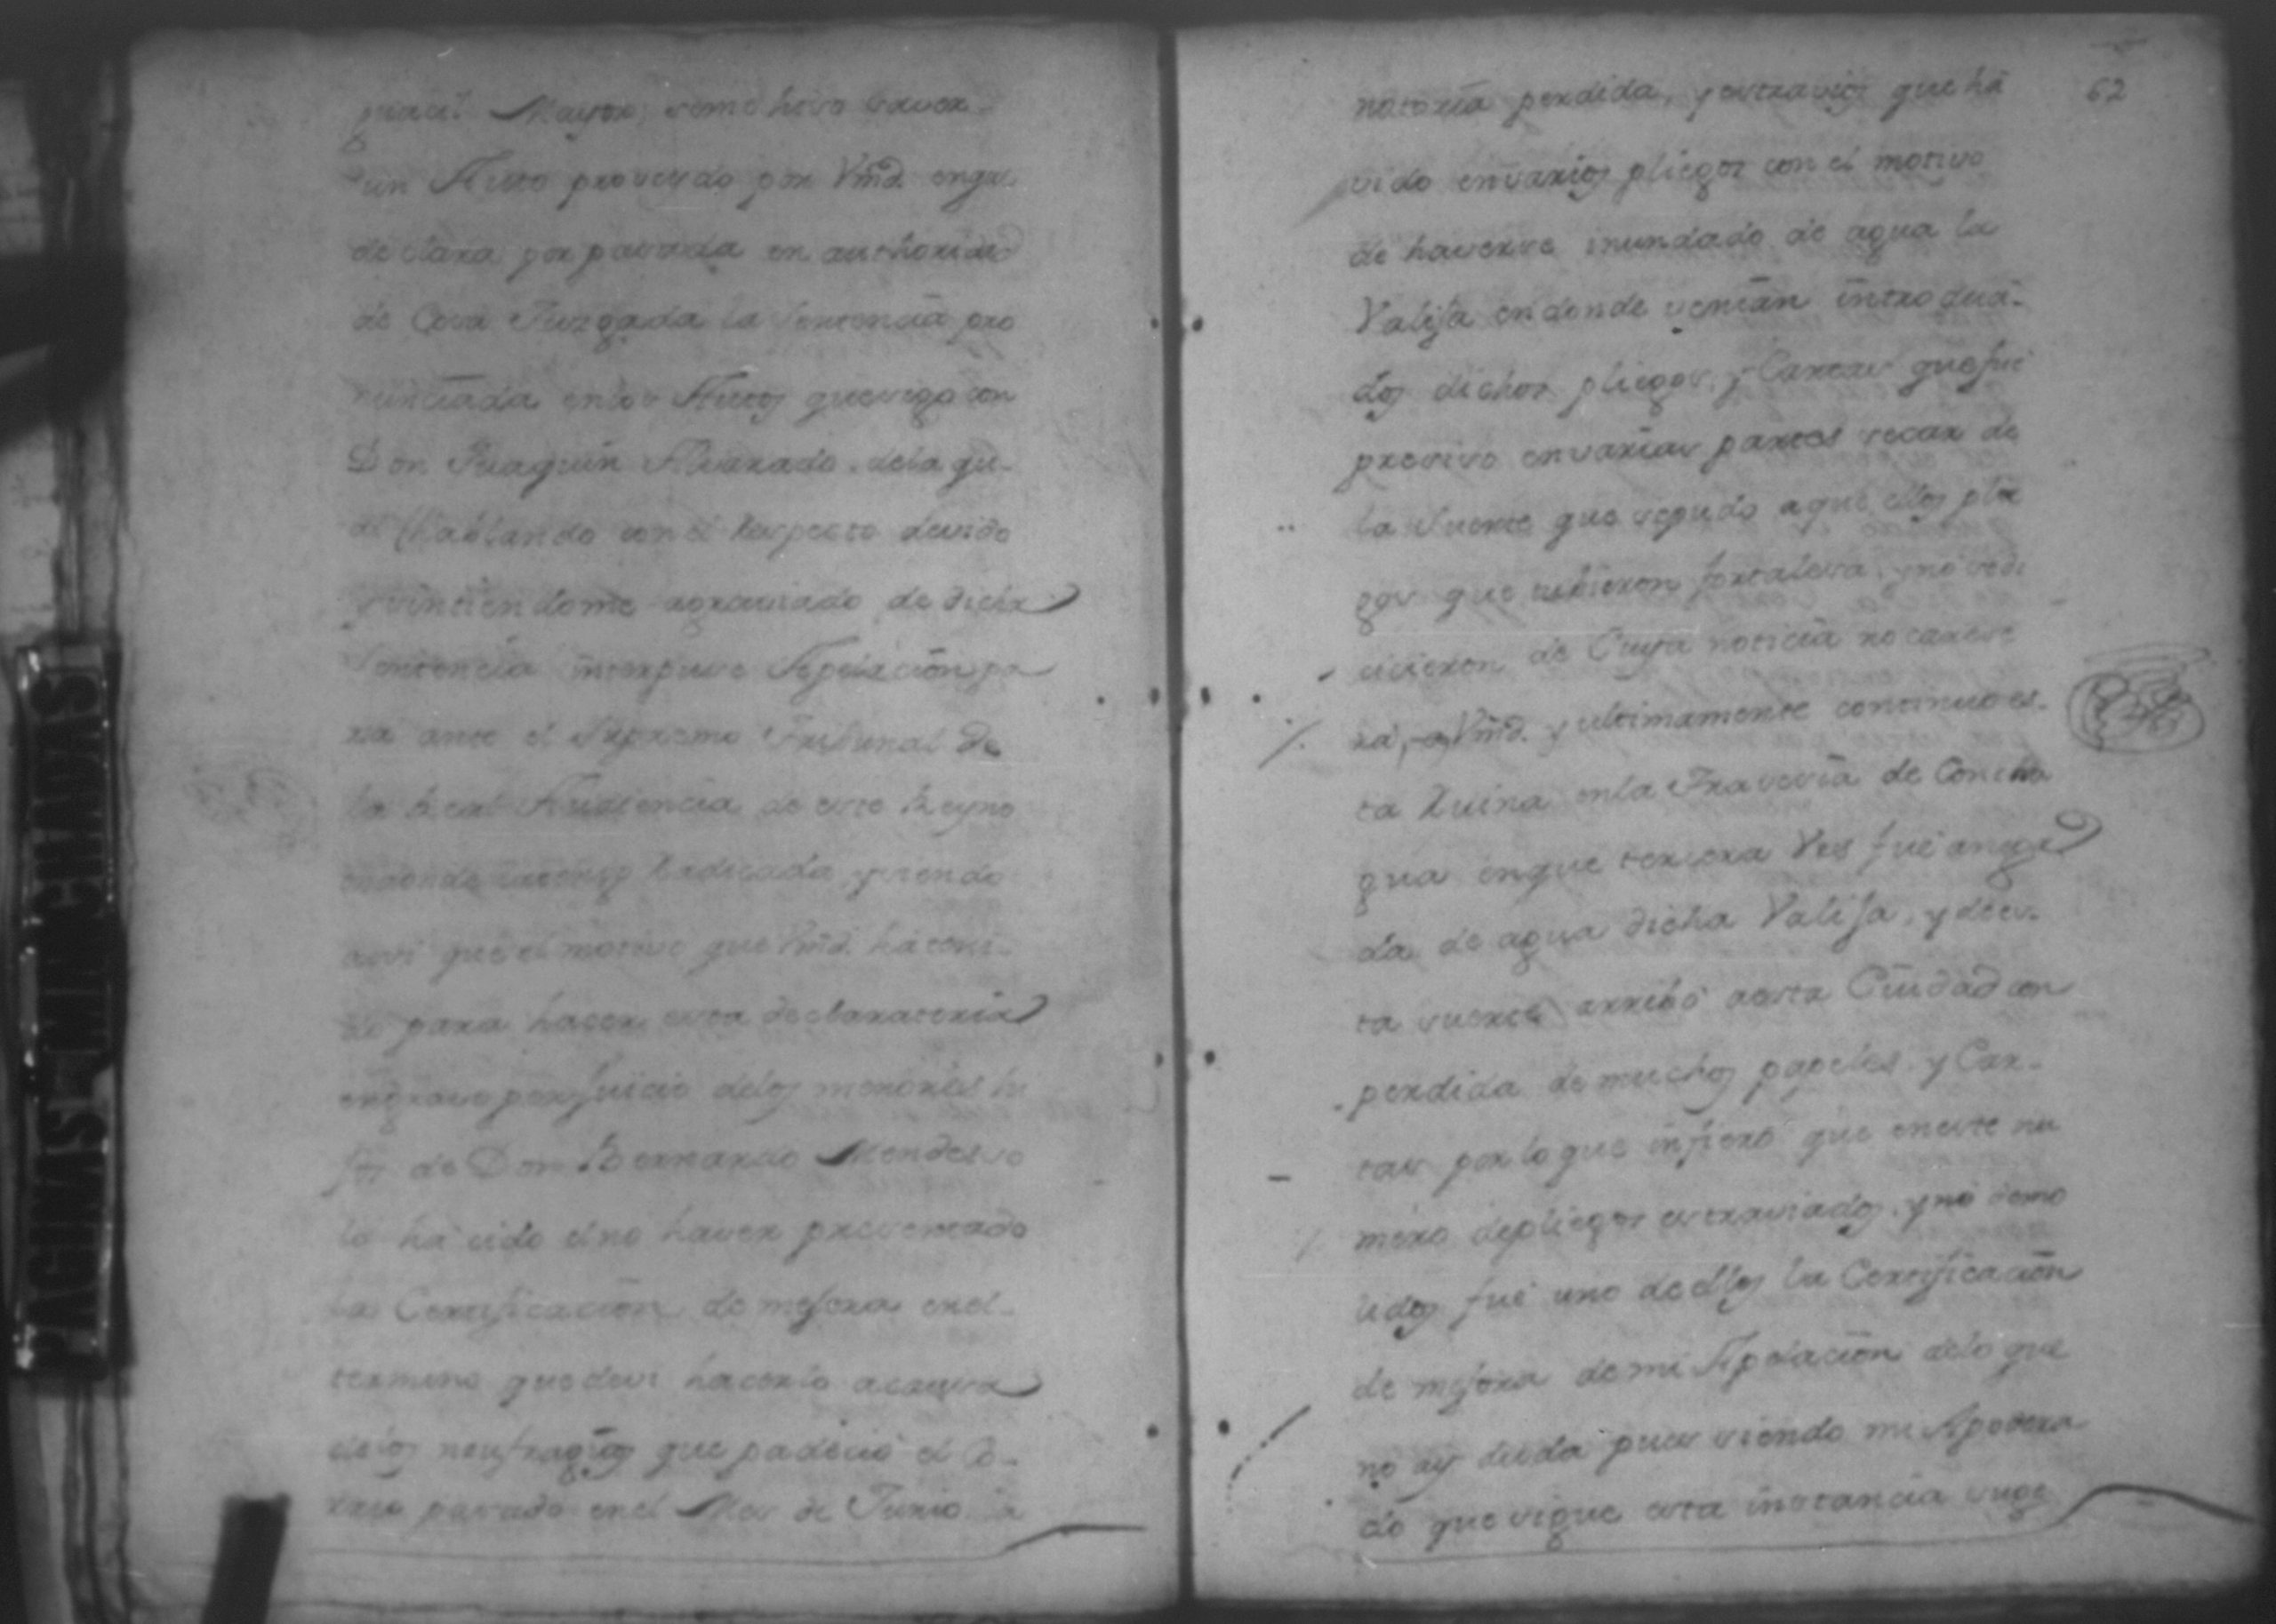 guacil Mayor, seme hiso saver
un Auto proveydo por Vmd. enqe.
declara por pasada en authoridad
de Cosa Jusgada la sentencia pro
nunciada enlos Autos que sigo con
Don Juaquin Alvarado, dela qu-
al (hablando con el respecto devido
y sintiendome agraviado de dicha
sentencia interpuse Apelacion pa
ra ante el Supremo Tribunal de
la Real Audiencia de este Reyno
endonde radicada, y siendo
assi que el motivo que Vmd. há teni-
do para hacer esta declaratoria
engrave perjuicio delos menores hi
jos de Don Bernardo Mendes se
lo há sido el no haver presentado
la Certificacion de mejora enel-
termino que devi hacerlo acausa
delos naufragios que padeció el Co-
rreo pasado enel Mes de Junio la
62
notoria perdida, y extravios que há
vido envarios pliegos con el motivo
de haverse inundado de agua la
Valija endonde venian introduci-
dos dichos pliegos, y Cartas que fué
presiso envarias partes secar de
la suerte que se pudo aquellos plie
gos que tubieron fortalesa, y no se di
vieron de Cuya noticia no carese
rá, Vmd. y ultimamente continuo es-
ta Ruina enla Travesia de Concha
gua enque tercera Ves fué anega
da de agua dicha Valija, y de es-
ta suerte arribó aesta Ciudad con
perdida de muchos papeles, y Car-
tas por lo que infiero que eneste nu
mero depliegos extraviados, y no demo
lidos fué uno deellos la Certificacion
de mejora de mi Apelacion delo que
no ay duda pues siendo mi Apodera
do que sigue esta instancia suge
PAGINAS MANCHADAS